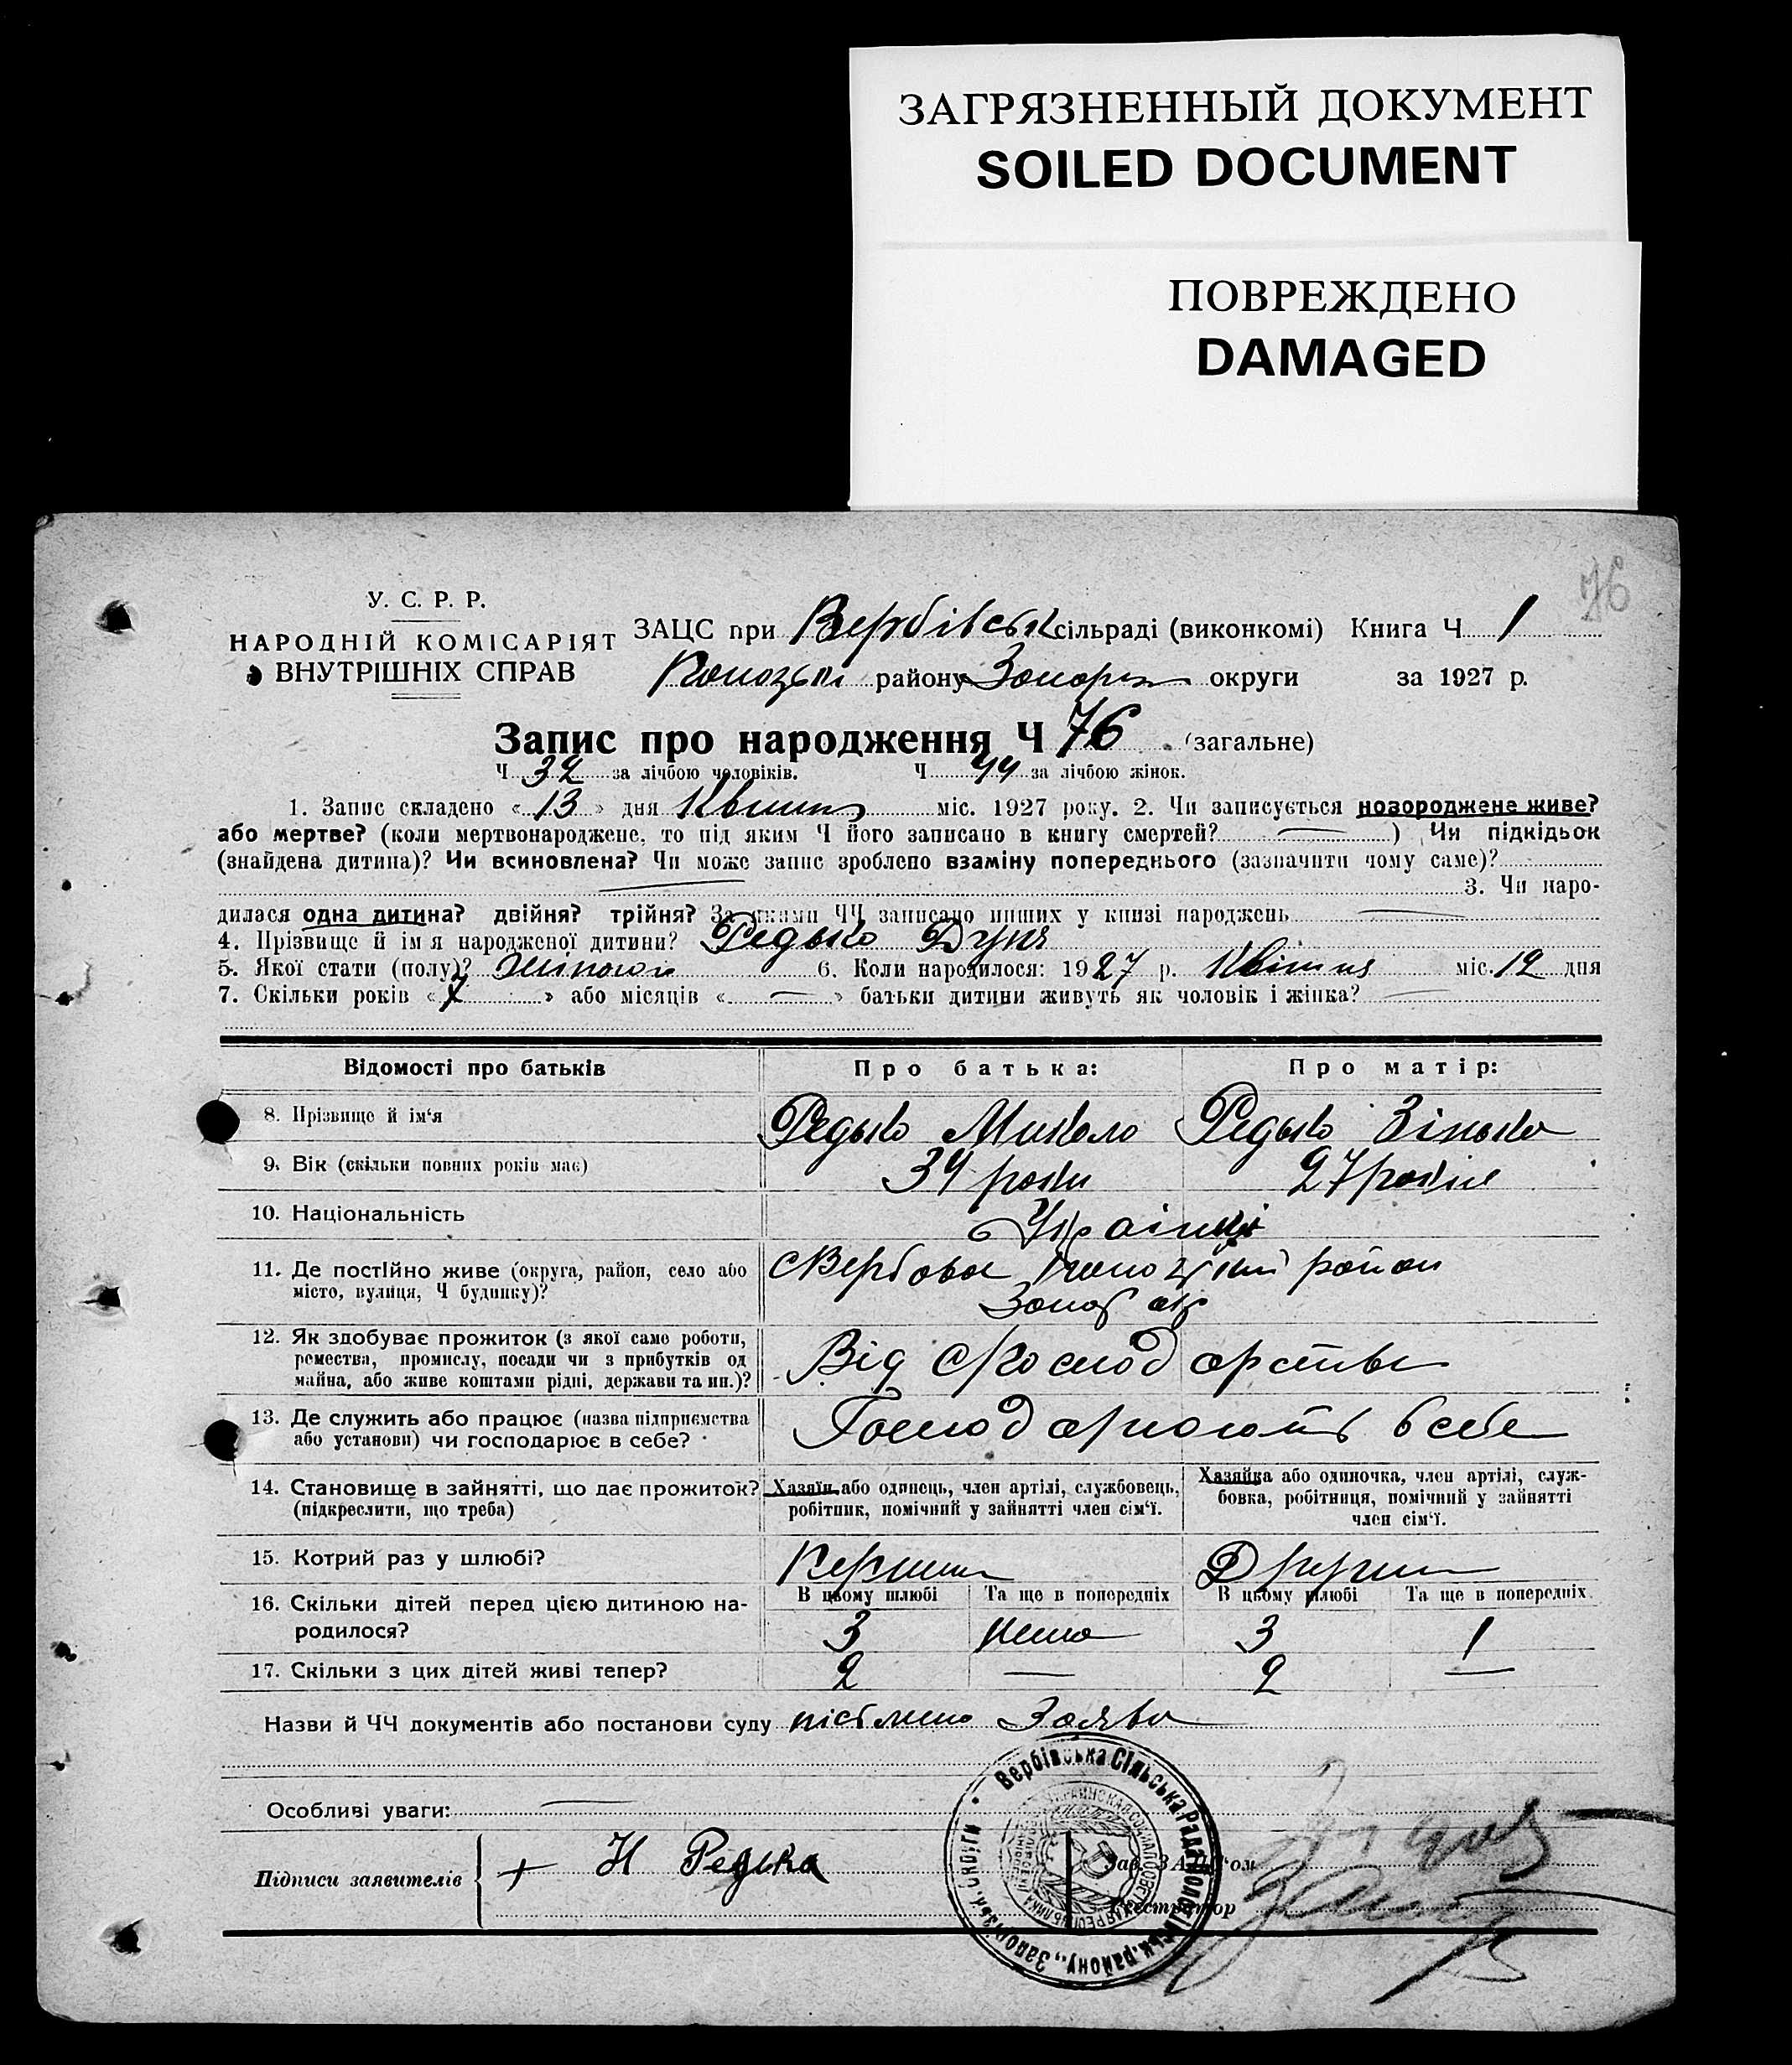 ЗАГРЯЗНЕННЫЙ ДОКУМЕНТ
SOILED DOCUMENT
ПОВРЕЖДЕНО
DAMAGED
76
У. С. Р. Р.
НАРОДНІЙ КОМІСАРІЯТ
ВНУТРІШНІХ СПРАВ
ЗАЦС при Вербівськ сільраді (виконкомі) Книга Ч 1
району округи за 1927 р.
Запис про народження Ч 76 (загальне)
Ч 32 за лічбою чоловіків. Ч 44 за лічбою жінок.
1. Запис складено «13» дня Квітня міс. 1927 року. 2. Чи записується новороджене живе?
або мертве? (коли мертвонароджене, то під яким Ч його записано в книгу смертей? —) Чи підкідьок
(знайдена дитина)? Чи всиновлена? Чи може запис зроблено взаміну попереднього (зазначити чому саме)?
— 3. Чи наро-
дилася одна дитина? двійня? трійня? За якими ЧЧ записано инших у книзі народжень —
4. Прізвище й ім'я народженої дитини? Редько Дуня
5. Якої стати (полу)? 6. Коли народилося: 1927 р. Квітня міс. 12 дня
7. Скільки років «7» або місяців «—» батьки дитини живуть як чоловік і жінка? —
Відомості про батьків Про батька: Про матір:
8. Прізвище й ім'я Редько Микола Редько Зінька
9. Вік (скільки повних років має) 34 роки 27 років
10. Національність Українці
11. Де постійно живе (округа, район, село або
місто, вулиця, Ч будинку)?
С Вербове район
Запор окр
12. Як здобуває прожиток (з якої саме роботи,
ремества, промислу, посади чи з прибутків од
майна, або живе коштами рідні, держави та ин.)?
Від с/господарства
13. Де служить або працює (назва підприємства
або установи) чи господарює в себе?
Господарюють в себе
14. Становище в зайнятті, що дає прожиток?
(підкреслити, що треба)
Хазяїн або одинець, член артілі, службовець,
робітник, помічний у зайнятті член сім'ї.
Хазяйка або одиночка, член артілі, служ-
бовка, робітниця, помічний у зайнятті
член сім'ї.
15. Котрий раз у шлюбі? Перший
16. Скільки дітей перед цією дитиною на-
родилося?
В цьому шлюбі Та ще в попередніх В цьому шлюбі Та ще в попередніх
3 Нема 3 1
17. Скільки з цих дітей живі тепер? 2 — 2 —
Назви й ЧЧ документів або постанови суду Заява
Особливі уваги: —
Підписи заявителів + Н Редька
Зав. ЗАЦС'ом
Реєстратор
Вербівська Сільська Рада Пологівськ. району, Запорізьк. Округи